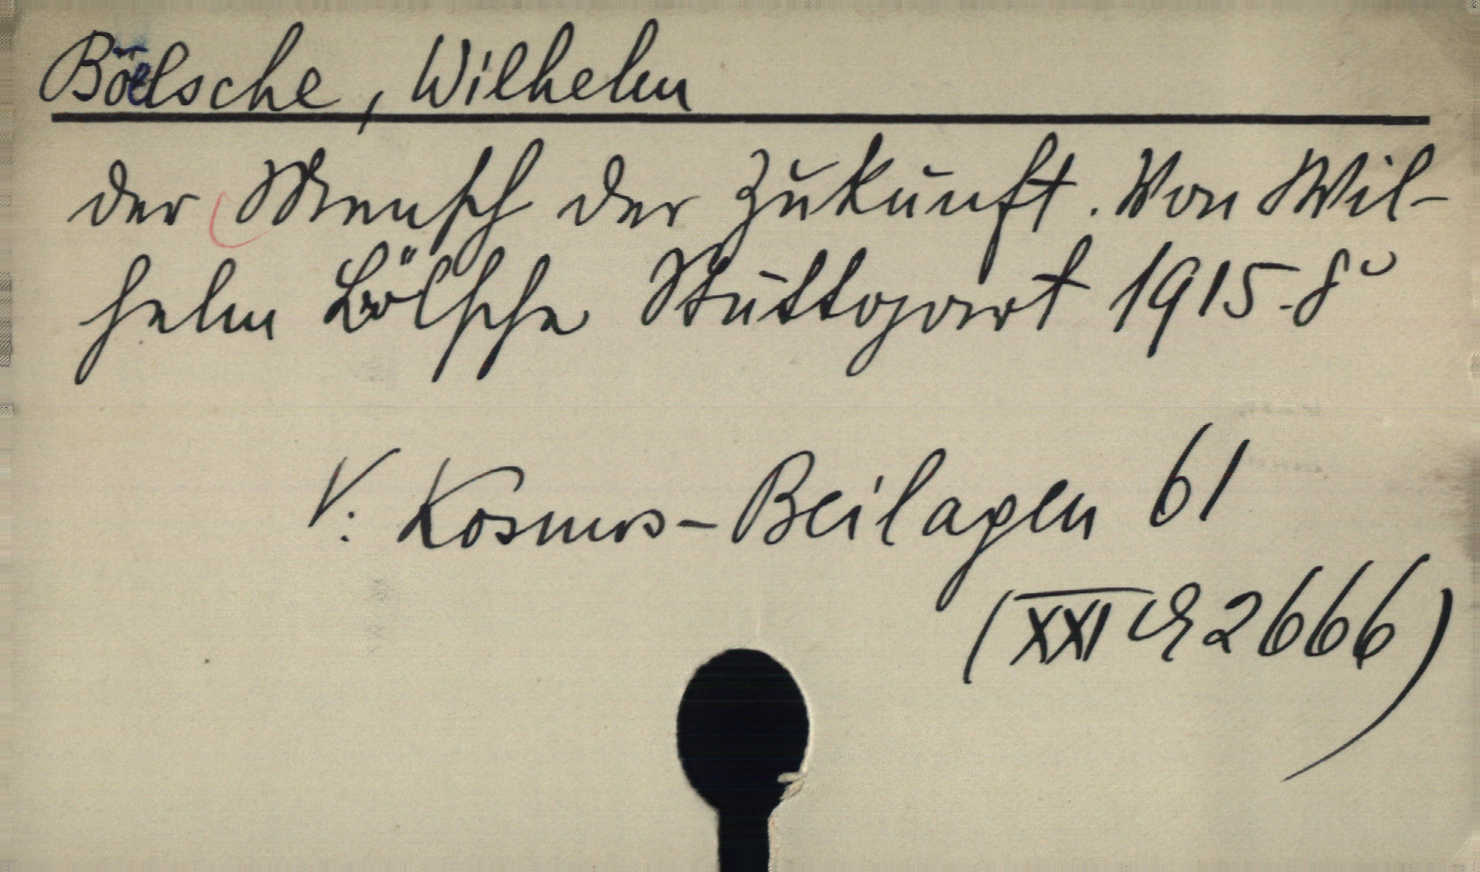 Böelsche, Wilhelm
der Mensch der Zukunft. Von Wil-
helm Bölsche Stuttgart 1915. 8°
V. Kosmos-Beilagen 61
(XXI 2666)